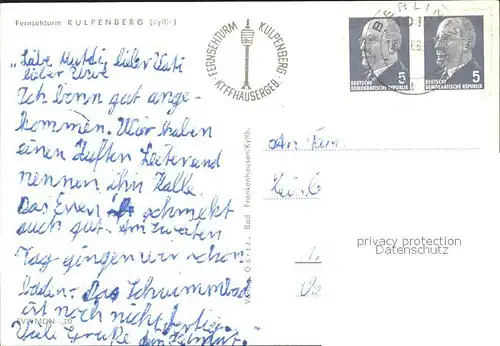 Fernsehturm KULPENBERG (Kyffh.)
FERNSEHTURM KULPENBERG
· KYFFHÄUSERGEB. ·
BERLIN
5 DEUTSCHE DEMOKRATISCHE REPUBLIK
DEUTSCHE DEMOKRATISCHE REPUBLIK 5
„Liebe Mutti, lieber Vati
lieber Uwe
Ich binn gut ange-
kommen. Wir haben
einen duften Leiter und
nennen ihn Kalle.
Das Essen schmekt
auch gut. Am zweiten
Tag gingen wir schon
baden. Das Schwimmbad
ist noch nicht fertig.
Viele Grüße
An Fam.
Verlag Göritz, Bad Frankenhausen/Kyffh.
privacy protection
Datenschutz